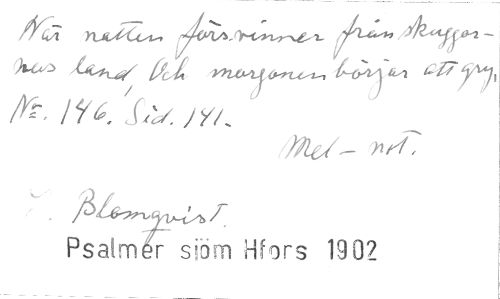 När natten försvinner från skuggor-
nas land, Och morgonen börjar att gry,
No. 146. Sid. 141.
Mel-not.
Blomqvist.
Psalmer sjöm Hfors 1902